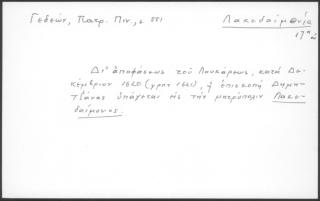 Γεδεών, Πατρ. Πιν., σ 551
Λακεδαίμονία
17ος
Δι' ἀποφάσεως τοῦ Λουκάρεως, κατὰ Δε-
κέμβριον 1620 (γρπτ 1621), ἡ ἐπισκοπὴ Δημη-
τζάνας ὑπάγεται εἰς τὴν μητρόπολιν Λακε-
δαίμονος.